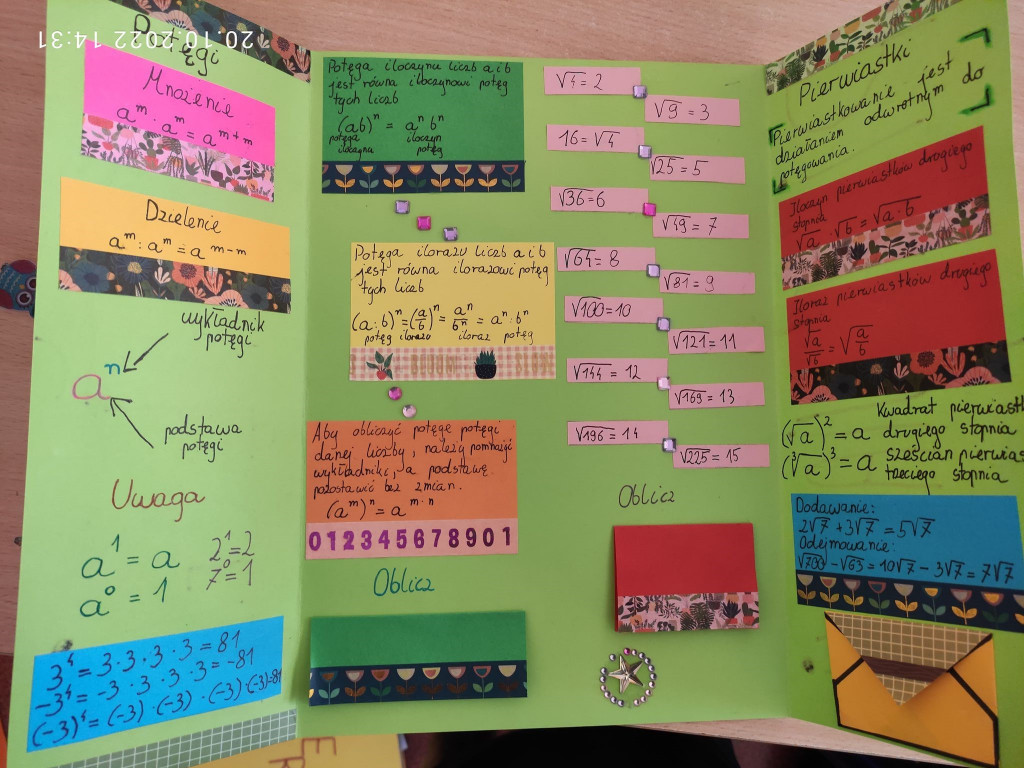 20.10.2022 14:31
Potęgi
Mnożenie
aᵐ · aᵐ = aᵐ⁺ᵐ
Dzielenie
aᵐ : aᵐ = aᵐ⁻ᵐ
wykładnik
potęgi
aⁿ
podstawa
potęgi
Uwaga
a¹ = a
2¹=2
a⁰ = 1
7⁰=1
3⁴ = 3·3·3·3 = 81
-3⁴ = -3·3·3·3 = -81
(-3)⁴ = (-3)·(-3)·(-3)·(-3)=81
Potęga iloczynu liczb a i b
jest równa iloczynowi potęg
tych liczb
(ab)ⁿ = aⁿ bⁿ
potęga iloczyn
iloczynu potęg
Potęga ilorazu liczb a i b
jest równa ilorazowi potęg
tych liczb
(a:b)ⁿ=(a/b)ⁿ = aⁿ/bⁿ = aⁿ:bⁿ
potęg ilorazu iloraz potęg
Aby obliczyć potęgę potęgi
danej liczby, należy pomnożyć
wykładniki, a podstawę
pozostawić bez zmian.
(aᵐ)ⁿ = aᵐ·ⁿ
012345678901
Oblicz
√4 = 2
√9 = 3
16 = √4
√25 = 5
√36 = 6
√49 = 7
√64 = 8
√81 = 9
√100 = 10
√121 = 11
√144 = 12
√169 = 13
√196 = 14
√225 = 15
Oblicz
Pierwiastki
Pierwiastkowanie jest
działaniem odwrotnym do
potęgowania.
Iloczyn pierwiastków drugiego
stopnia
√a · √b = √a·b
Iloraz pierwiastków drugiego
stopnia
√a/√b = √(a/b)
(√a)² = a kwadrat pierwiast
drugiego stopnia
(∛a)³ = a sześcian pierwias
trzeciego stopnia
Dodawanie:
2√7 + 3√7 = 5√7
Odejmowanie:
√700 - √63 = 10√7 - 3√7 = 7√7